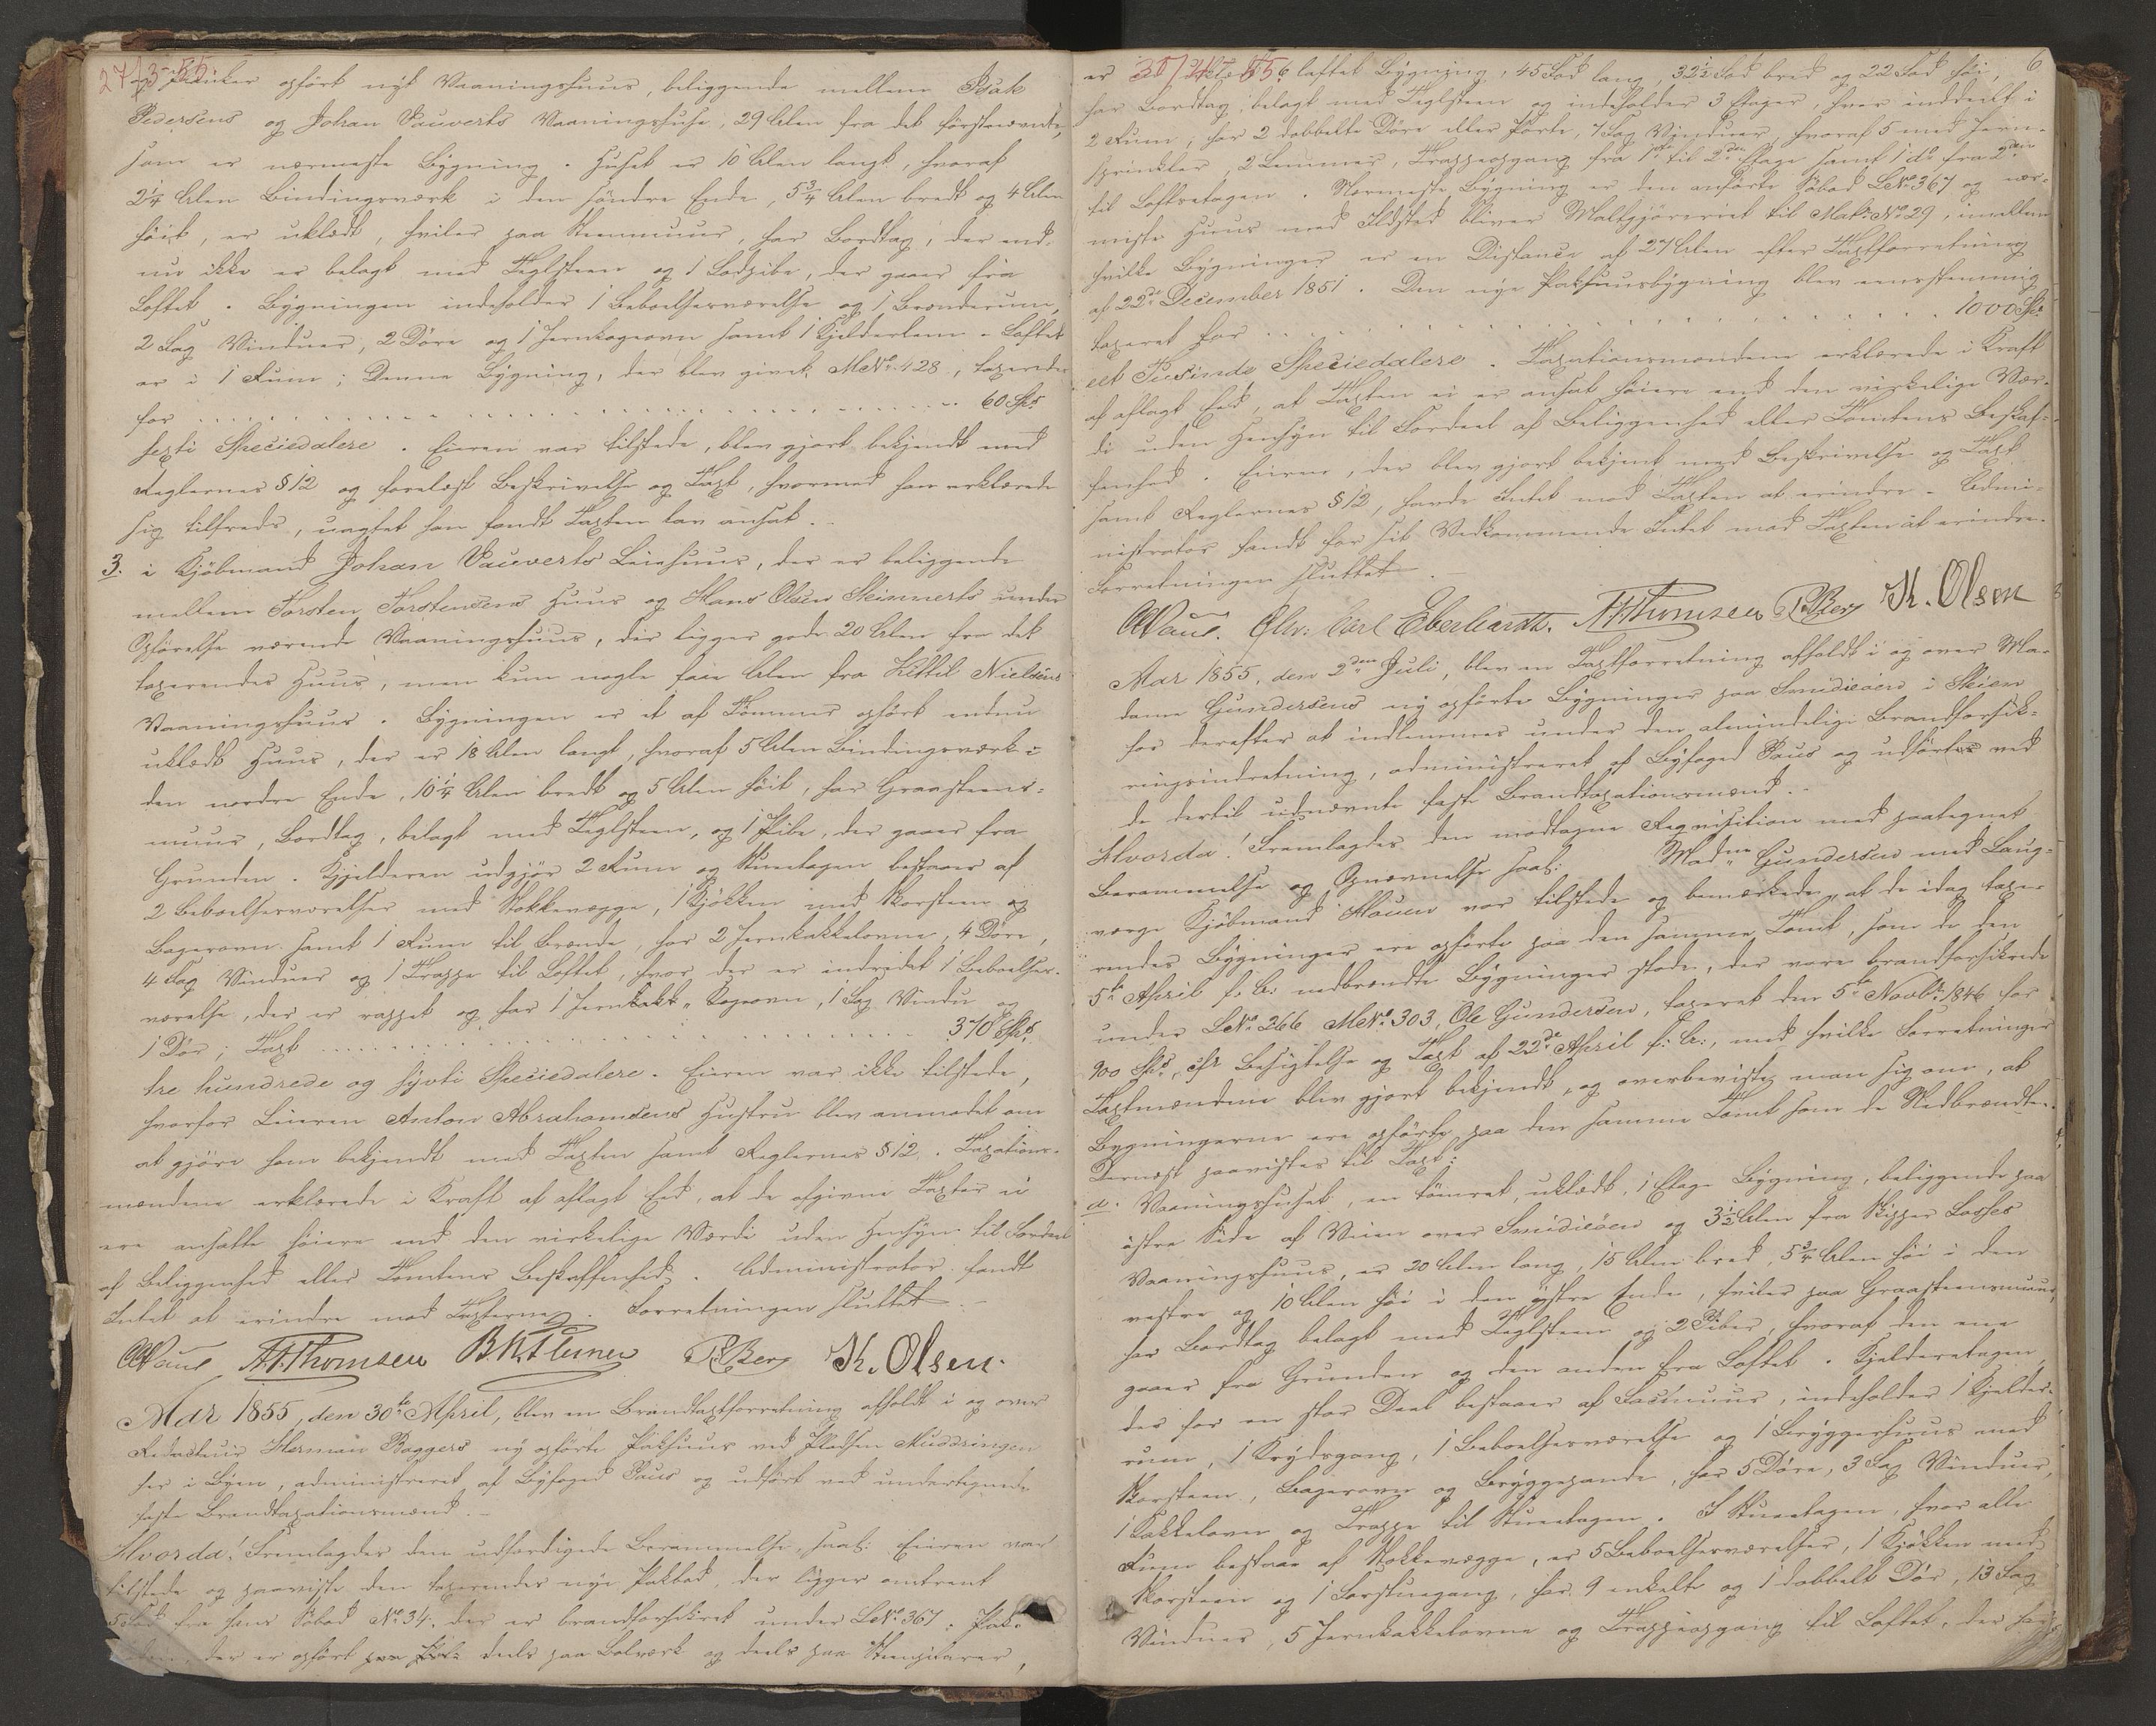 27/3-55.
og Planker opført nyt Vaaningshuus, beliggende mellem Isak
Pedersens og Johan Vauverts Vaaningshuse, 29 Alen fra det førstnævnte,
som er nærmeste Bygning. Huset er 10 Alen langt, hvoraf
2¼ Alen Bindingsværk i den søndre Ende, 5¾ Alen bredt og 4 Alen
høit, er uklædt, hviler paa Steenmuur, har Bordtag, der end-
nu ikke er belagt med Teglsteen og 1 Lodpibe, der gaaer fra
Loftet. Bygningen indeholder 1 Beboelsesværelse og 1 Brænderum,
2 Fag Vinduer, 2 Døre og 1 Jernkogeovn samt 1 Kjelderlem. Loftet
er i 1 Rum; Denne Bygning, der blev givet MtNo. 428, taxeredes
for . . . . . . . . . . . . . . . 60 Spd.
sexti Speciedalere. Eieren var tilstede, blev gjort bekjendt med
Reglernes § 12 og forelæst Beskrivelse og Taxt, hvormed han erklærede
sig tilfreds, uagtet han fandt Taxten lav ansat.
3. i Kjøbmand Johan Vauverts Leiehuus, der er beliggende
mellem Torsten Torstensens Huus og Hans Olsen Skinnerts under
Opførelse værende Vaaningshuus, der ligger godt 20 Alen fra det
taxerendes Huus, men kun nogle faae Alen fra Kittil Nielsens
Vaaningshuus. Bygningen er et af Tømmer opført endnu
uklædt Huus, der er 18 Alen langt, hvoraf 5 Alen Bindingsværk i
den nordre Ende, 10¼ Alen bredt og 5 Alen høit, har Graasteens-
muur, Bordtag, belagt med Teglsteen, og 1 Pibe, der gaaer fra
Grunden. Kjelderen udgjør 2 Rum og Stueetagen bestaaer af
2 Beboelsesværelser med Stokkevægge, 1 Kjøkken med Skorsteen og
Bagerovn samt 1 Rum til Brænde, har 2 Jernkakkelovne, 4 Døre,
4 Fag Vinduer og 1 Trappe til Loftet, hvor der er indredet 1 Beboelses-
værelse, der er rappet og har 1 Jernkakk. Kogeovn, 1 Fag Vindu og
1 Dør; Taxt . . . . . . . . . . . . 370 Spd.
tre hundrede og sytti Speciedalere. Eieren var ikke tilstede,
hvorfor Leieren Anton Abrahamsens Hustru blev anmodet om
at gjøre ham bekjendt med Taxten samt Reglernes § 12. Taxations-
mændene erklærede i Kraft af aflagt Eed, at de afgivne Taxter ei
ere ansatte høiere end den virkelige Værdi uden Hensyn til Fordeel
af Beliggenhed eller Tomtens Beskaffenhed. Administrator fandt
Intet at erindre mod Taxterne. Forretningen sluttet.
Paus A. Thomsen R. Berg K. Olsen.
Aar 1855, den 30te April, blev en Brandtaxtforretning afholdt i og over
Redacteur Herman Baggers ny opførte Pakhuus ved Pladsen Muddringen
her i Byen, administreret af Byfoged Paus og udført ved undertegnede
faste Brandtaxationsmænd.
Hvorda! Fremlagdes den udfærdigede Berammelse, saal: Eieren var
tilstede og paaviste den taxerendes nye Pakbod, der ligger omtrent
5 Fod fra hans Søbod No. 34, der er brandforsikret under LNo. 367. Pak-
der er opført deels paa Bolværk og deels paa Steenpilarer,
6
30/4 55
er laftet Bygning, 45 Fod lang, 32½ Fod bred og 22 Fod høi,
har Bordtag, belagt med Teglsteen og indeholder 3 Etager, hver inddeelt i
2 Rum, har 2 dobbelte Døre eller Porte, 7 Fag Vinduer, hvoraf 5 med Jern-
sprinkler, 2 Lemmer, Trappeopgang fra 1ste til 2den Etage samt 1 do fra 2den
til Loftsetagen. Nærmeste Bygning er den anførte Søbod LNo. 367 og nær-
meste Huus med Ildsted bliver Maltgjøreriet til Matr. No. 29, imellem
hvilke Bygninger er en Distance af 27 Alen efter Taxtforretning
af 22de December 1851. Den nye Pakhuusbygning blev eenstemmig
taxeret for . . . . . . . . . . . . 1000 Spd.
eet Tusinde Speciedalere. Taxationsmændene erklærede i Kraft
af aflagt Eed, at Taxten ei er ansat høiere end den virkelige Vær-
di uden Hensyn til Fordeel af Beliggenhed eller Tomtens Beskaf-
fenhed. Eieren, der blev gjort bekjent med Beskrivelse og Taxt
samt Reglernes § 12, havde Intet mod Taxten at erindre. Admi-
nistrator fandt for sit Vedkommende Intet mod Taxten at erindre.
Forretningen sluttet.
Paus. Chr. Carl Eberhardt. A. Thomsen R. Berg K. Olsen
Aar 1855, den 2den Juli, blev en Taxtforretning afholdt i og over Ma-
dame Gundersens ny opførte Bygninger paa Smidieøen i Skien
for derefter at indlemmes under den almindelige Brandforsik-
ringsindretning, administreret af Byfoged Paus og udførtes ved
de dertil udnævnte faste Brandtaxationsmænd.
Hvorda! Fremlagdes den modtagne Requisition med paategnet
Berammelse og Opnævnelse saal: Madme Gundersen med Laug-
værge Kjøbmand Houen var tilstede og bemærkede, at de idag taxe-
rendes Bygninger ere opførte paa den samme Tomt, som de den
5te April f. A. nedbrændte Bygninger stode, der vare brandforsikrede
under LNo. 266 MtNo. 303, Ole Gundersen, taxeret den 5te Novbr. 1846 for
900 Spd., cfr Besigtelse og Taxt af 22de April f. A., med hvilke Forretninger
Taxtmændene blev gjort bekjendt, og overbeviste man sig om, at
Bygningerne ere opførte paa den samme Tomt som de Nedbrændte.
Dernæst paavistes til Taxt:
a. Vaaningshuset, en tømret, uklædt, 1 Etage Bygning, beliggende paa
østre Side af Veien over Smidieøen og 3½ Alen fra Skipper Lasses
Vaaningshuus, er 20 Alen lang, 15 Alen bred, 5¾ Alen høi i den
vestre og 10 Alen høi i den østre Ende, hviler paa Graasteensmuur,
har Bordtag belagt med Teglsteen og 2 Piber, hvoraf den ene
gaaer fra Grunden og den anden fra Loftet. Kjelderetagen,
der for en stor Deel bestaaer af Muur, indeholder 1 Kjelder-
rum, 1 Krydsgang, 1 Beboelsesværelse og 1 Bryggerhuus med
Skorsteen, Bagerovn og Bryggepande, har 5 Døre, 3 Fag Vinduer,
1 Kakkelovn og Trappe til Stueetagen. I Stueetagen, hvor alle
Rum bestaae af Stokkevægge, er 5 Beboelsesværelser, 1 Kjøkken med
Skorsteen og 1 Forstuegang, har 9 enkelte og 1 dobbelt Dør, 13 Fag
Vinduer, 5 Jernkakkelovne og Trappeopgang til Loftet, der har